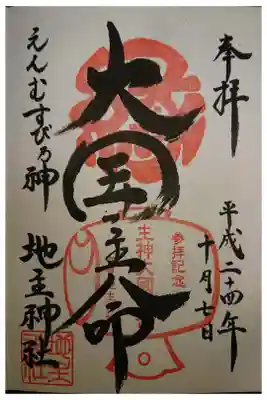 奉拝
平成二十四年
十月七日
大国主命
えんむすびの神
地主神社
参拝記念